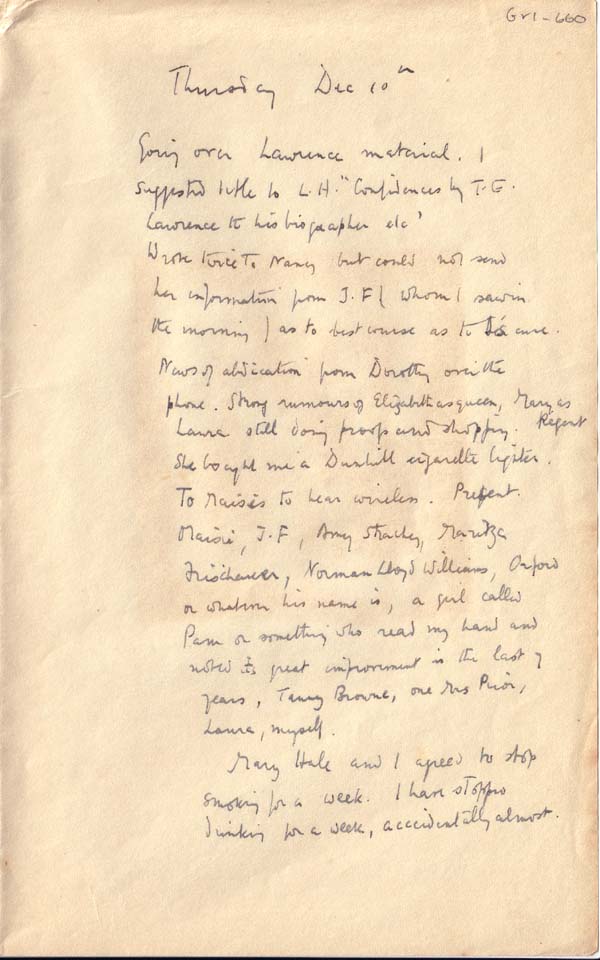 GV1-660
Thursday Dec 10th
Going over Lawrence material. I
suggested title to L.H. "Confidences by T.E.
Lawrence to his biographer etc'
Wrote twice to Nancy but could not send
her information from J.F ( whom I saw in
the morning ) as to best course as to cure.
News of abdication from Dorothy over the
phone. Strong rumours of Elizabeth as queen, Mary as
Regent
Laura still doing proofs and shopping.
She bought me a Dunhill cigarette lighter.
To Maisie's to hear wireless. Present.
Maisie, J.F, Amy Strachey, Maritza
Frischauer, Norman Lloyd Williams, Oxford
or whatever his name is, a girl called
Pam or something who read my hand and
noted its great improvement in the last 7
years, Tanny Browne, one Mrs Prior,
Laura, myself.
Mary Hale and I agreed to stop
smoking for a week. I have stopped
drinking for a week, acccidentally almost.